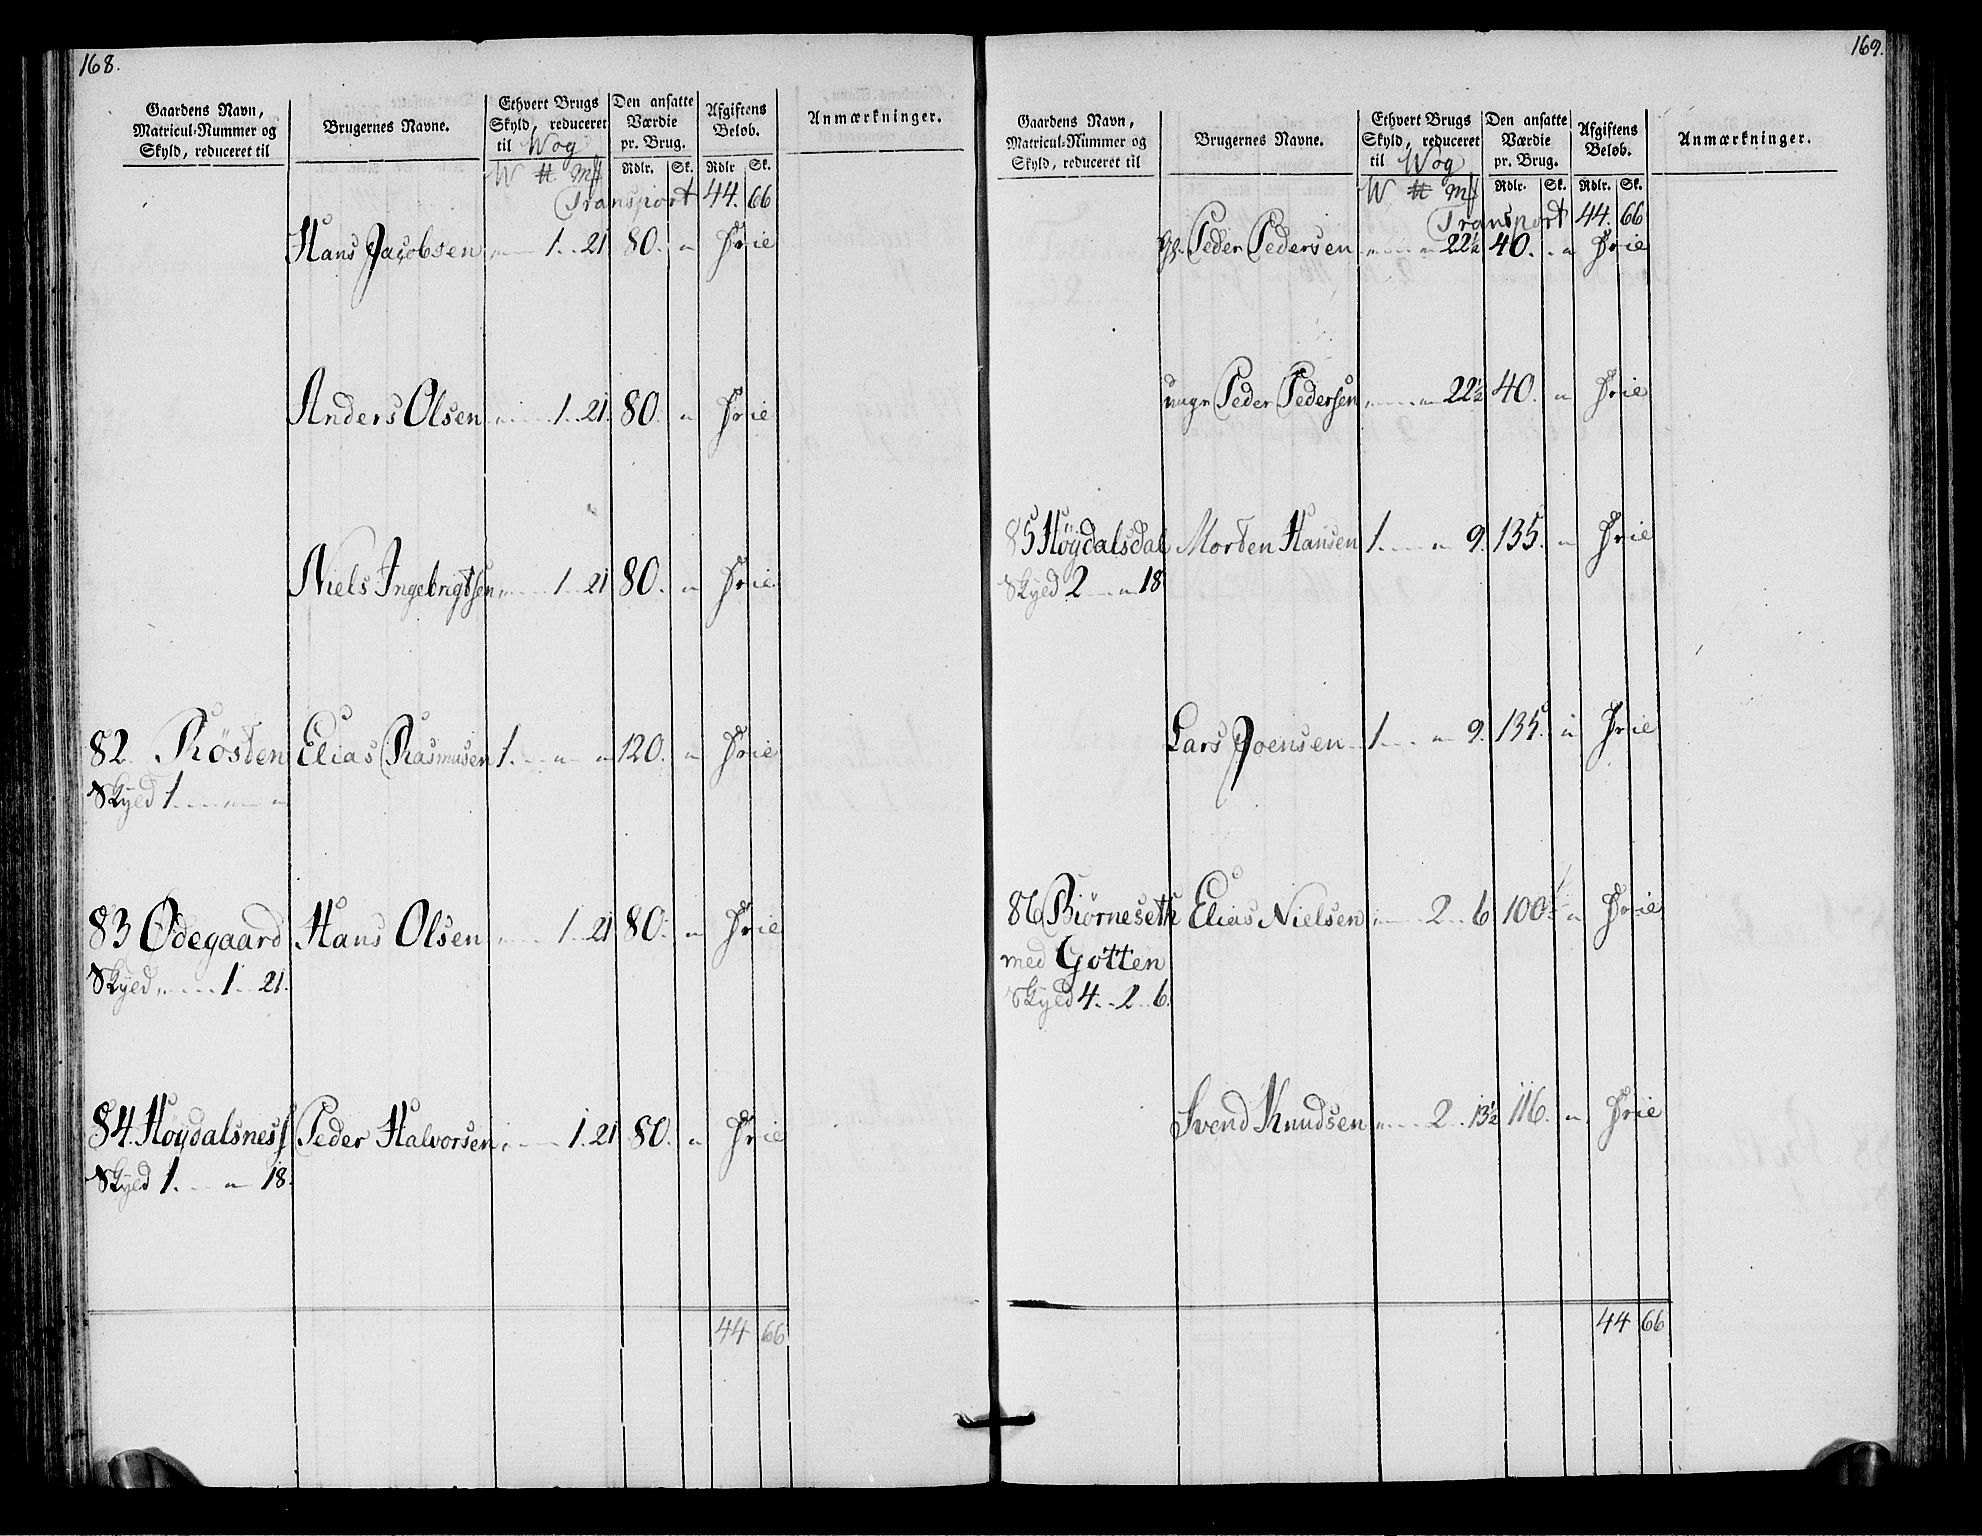 168.
Gaardens Navn, Matricul-Nummer og Skyld, reduceret til
Brugernes Navne.
Ethvert Brugs Skyld, reduceret til Wog
Den ansatte Værdie pr. Brug.
Afgiftens Beløb.
Anmærkninger.
W ℔ m℔ Rdlr. Sk. Rdlr Sk.
Transport 44. 66
Hans Jacobsen „ 1. 21 80. „ Frie
Anders Olsen „ 1. 21. 80. „ Frie
Niels Ingebrigtsen „ 1. 21 80. „ Frie
82. Rösten Elias Rasmusen 1. „ „ 120. „ Frie
Skyld 1. „ „
83 Ödegaard Hans Olsen „ 1. 21 80. „ Frie
Skyld „ 1. 21.
84. Höydalsness Peder Halvorsen „ 1. 21 80. „ Frie
Skyld 1. „ 18.
44 66
169.
Gaardens Navn, Matricul-Nummer og Skyld, reduceret til
Brugernes Navne.
Ethvert Brugs Skyld, reduceret til Wog
Den ansatte Værdie pr. Brug.
Afgiftens Beløb.
Anmærkninger.
W ℔ m℔ Rdlr. Sk. Rdlr. Sk.
Transport 44. 66
Peder Pedersen „ „ 22½ 40. „ Frie
ungr Peder Pedersen „ „ 22½ 40. „ Frie
85 Höydalsdal Morten Hansen 1. „ 9. 135. „ Frie
Skyld 2 „ 18
Lars Joensen 1. „ 9. 135. „ Frie
86 Biörneseth Elias Nielsen „ 2. 6 100. „ Frie
med Gotten
Skyld 4. 2. 6.
Svend Knudsen „ 2. 13½ 116. „ Frie
44 66